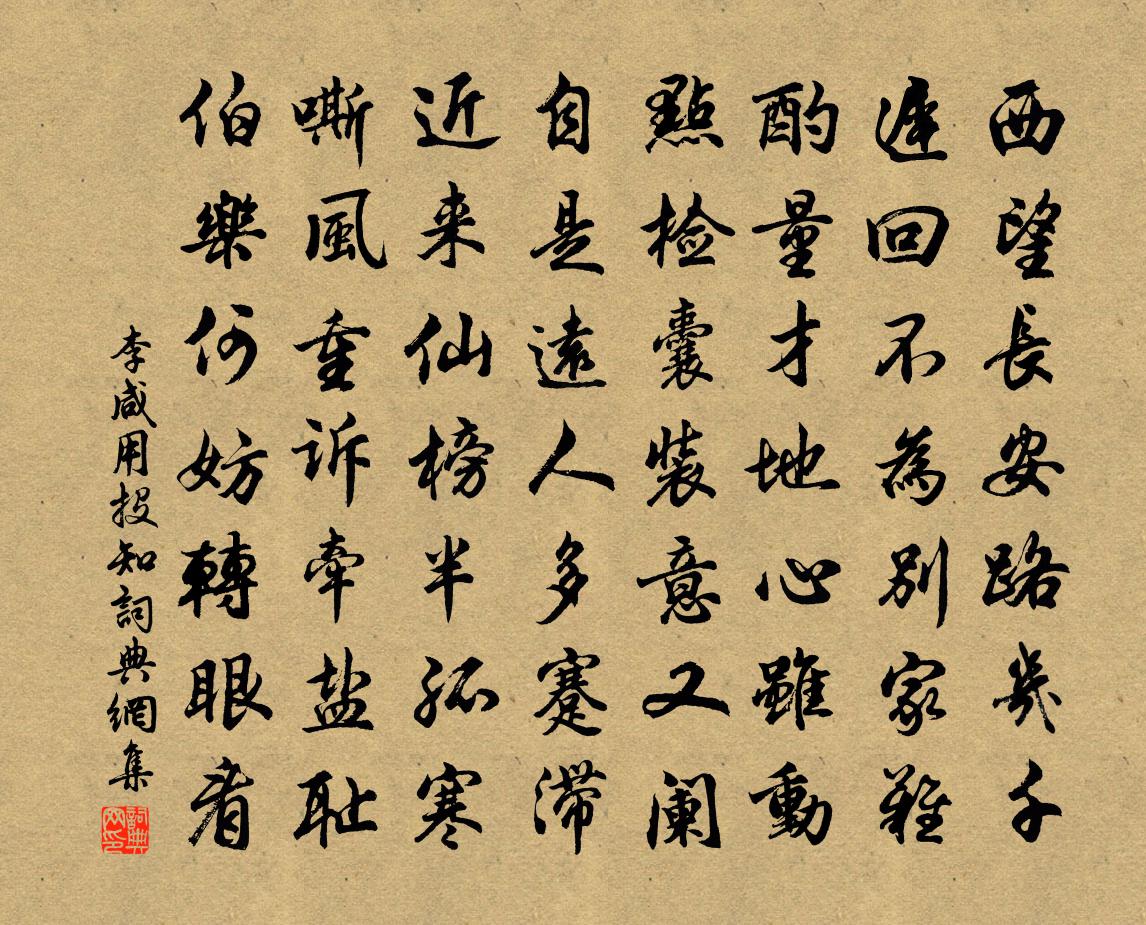 西望長安路幾千
遲回不為別家難
酌量才地心雖動
點檢囊裝意又阑
自是遠人多蹇滞
近来仙榜半孤寒
嘶風重诉牽盐耻
伯樂何妨轉眼看
李咸用投知詞典網集
詞典网印